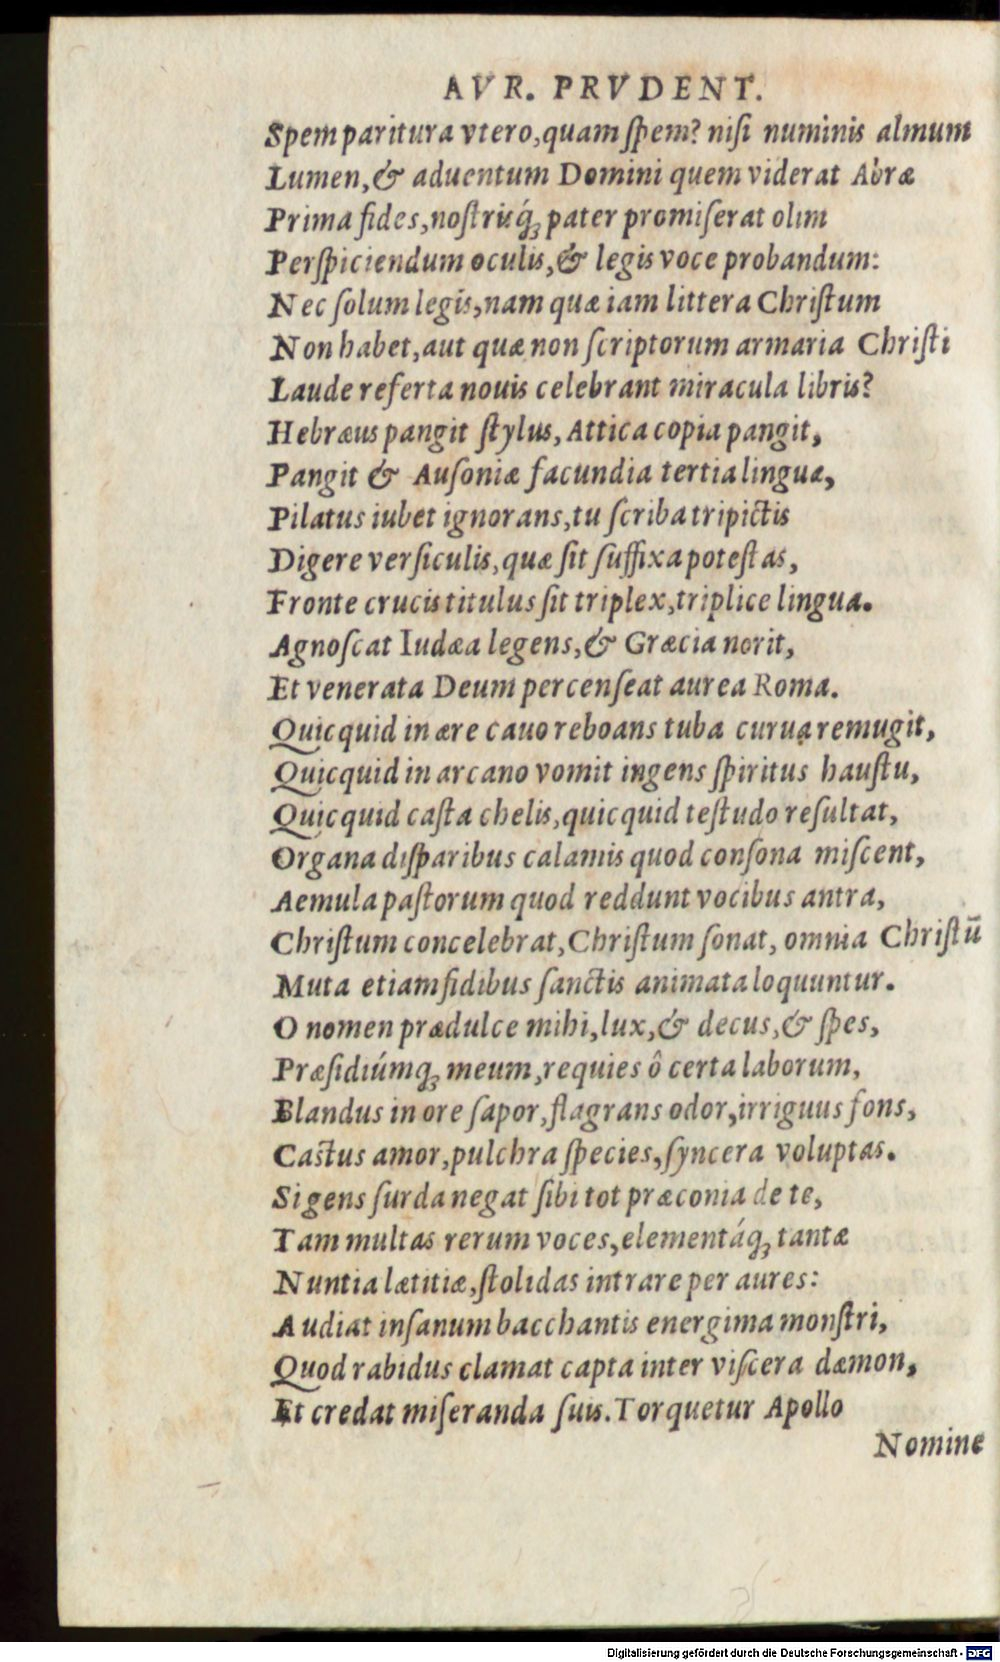 AVR. PRVDENT.
Spem paritura vtero, quam ſpem? niſi numinis almum
Lumen, & aduentum Domini quem viderat Abræ
Prima fides, noſtriq́ꝫ pater promiſerat olim
Perſpiciendum oculis, & legis voce probandum:
Nec ſolum legis, nam quæ iam littera Chriſtum
Non habet, aut quæ non ſcriptorum armaria Chriſti
Laude referta nouis celebrant miracula libris?
Hebræus pangit ſtylus, Attica copia pangit,
Pangit & Auſoniæ facundia tertia linguæ,
Pilatus iubet ignorans, tu ſcriba tripictis
Digere verſiculis, quæ ſit ſuffixa poteſtas,
Fronte crucis titulus ſit triplex, triplice lingua.
Agnoſcat Iudæa legens, & Græcia norit,
Et venerata Deum percenſeat aurea Roma.
Quicquid in ære cauo reboans tuba curua remugit,
Quicquid in arcano vomit ingens ſpiritus hauſtu,
Quicquid caſta chelis, quicquid teſtudo reſultat,
Organa diſparibus calamis quod conſona miſcent,
Aemula paſtorum quod reddunt vocibus antra,
Chriſtum concelebrat, Chriſtum ſonat, omnia Chriſtū
Muta etiam fidibus ſanctis animata loquuntur.
O nomen prædulce mihi, lux, & decus, & ſpes,
Præſidiúmqꝫ meum, requies ô certa laborum,
Blandus in ore ſapor, flagrans odor, irriguus fons,
Caſtus amor, pulchra ſpecies, ſyncera voluptas.
Si gens ſurda negat ſibi tot præconia de te,
Tam multas rerum voces, elementáqꝫ tantæ
Nuntia lætitiæ, ſtolidas intrare per aures:
Audiat inſanum bacchantis energima monſtri,
Quod rabidus clamat capta inter viſcera dæmon,
Et credat miſeranda ſuis. Torquetur Apollo
Nomine
Digitalisierung gefördert durch die Deutsche Forschungsgemeinschaft - DFG